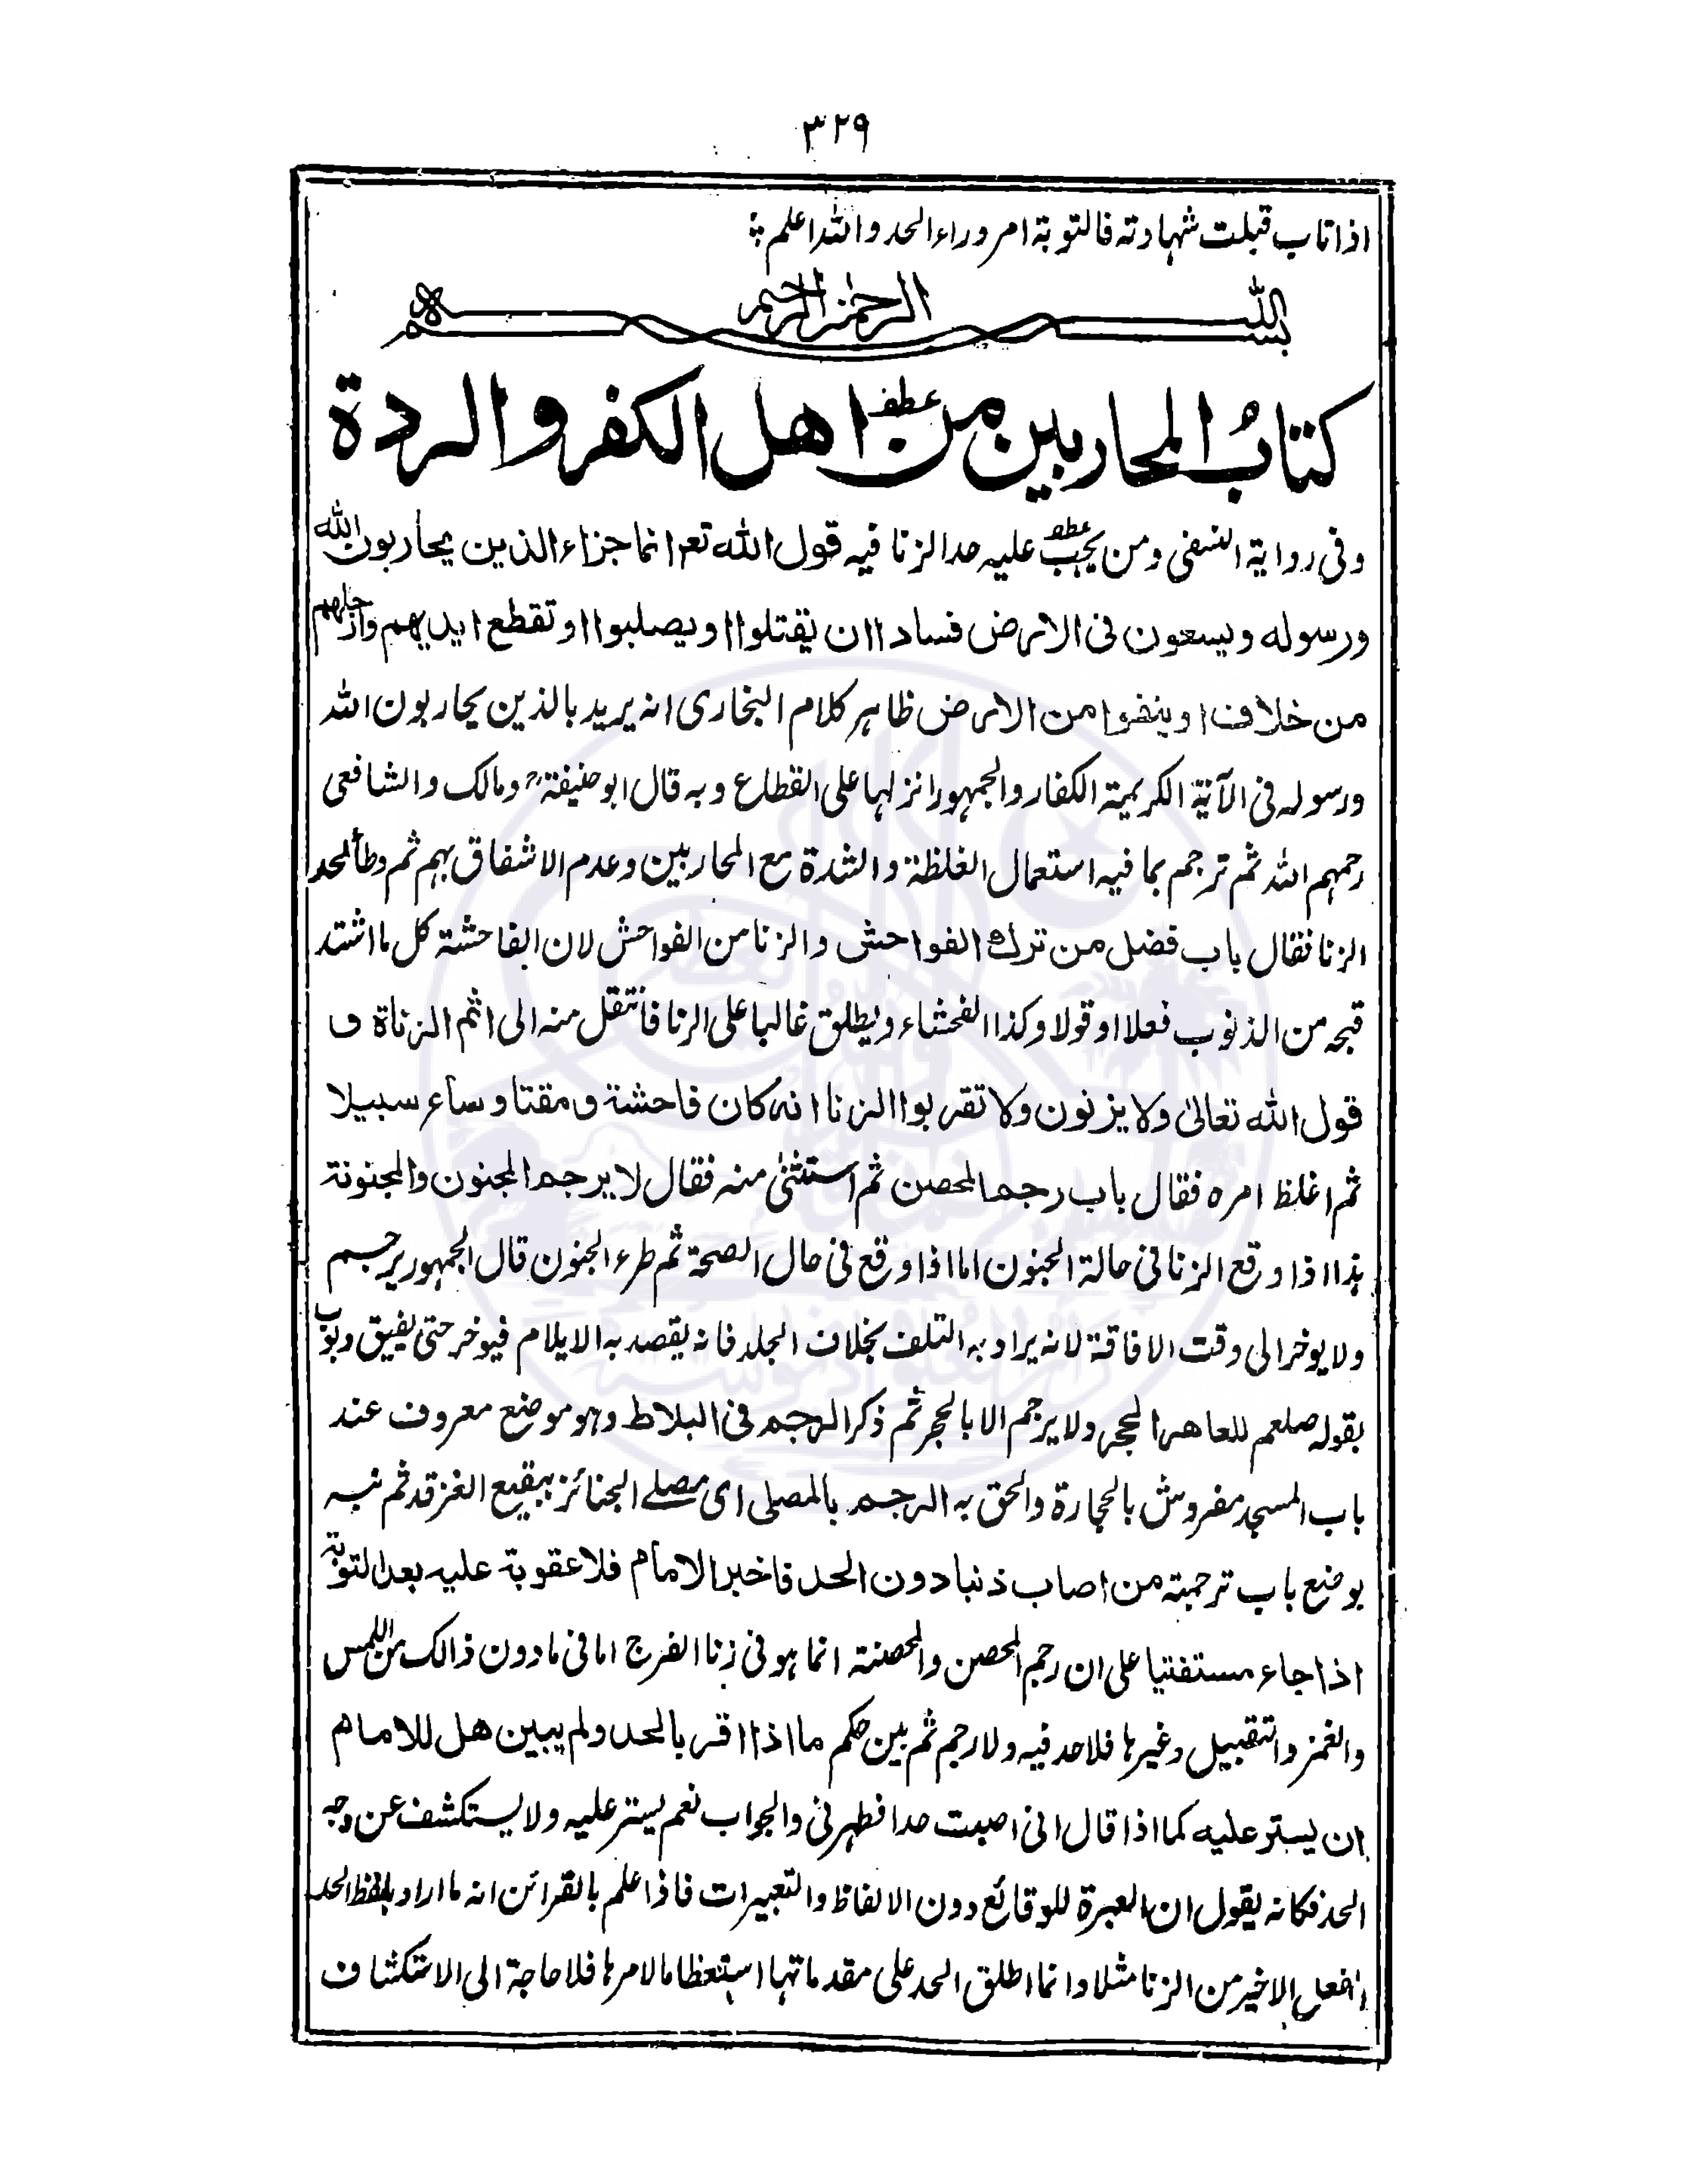 ٣٢٩
اذا تاب قبلت شهادته فالتوبة امر وراء الحد والله اعلم ؞
بسم الله الرحمن الرحيم
كتابُ المحاربين من عطف اهل الكفر والردة
وفى رواية النسفى ومن يجب عطف عليه حد الزنا فيه قول الله تعم انما جزاء الذين يحاربون الله
ورسوله ويسعون فى الارض فسادا ان يقتلوا او يصلبوا او تقطع ايديهم وارجلهم
من خلاف او ينفوا من الارض ظاهر كلام البخارى انه يريد بالذين يحاربون الله
ورسوله فى الآية الكريمة الكفار والجمهور انزلها على القطاع وبه قال ابو حنيفةؒ ومالك والشافعى
رحمهم الله ثم ترجم بما فيه استعمال الغلظة والشدة مع المحاربين وعدم الاشفاق بهم ثم وطأ لحد
الزنا فقال باب فضل من ترك الفواحش والزنا من الفواحش لان الفاحشة كل ما اشتد
قبحه من الذنوب فعلا او قولا وكذا الفحشاء ويطلق غالبا على الزنا فانتقل منه الى اثم الزناة و
قول الله تعالىٰ ولا يزنون ولا تقربوا الزنا انه كان فاحشة ومقتا وساء سبيلا
ثم اغلظ امره فقال باب رجم المحصن ثم استثنىٰ منه فقال لا يرجم المجنون والمجنونة
هذا اذا وقع الزنا فى حالة الجنون اما اذا وقع فى حال الصحة ثم طرء الجنون قال الجمهور يرجم
ولا يوخر الى وقت الافاقة لانه يراد به التلف بخلاف الجلد فانه يقصد به الايلام فيوخر حتى يفيق وبوب
بقوله صلعم للعاهر الحجر ولا يرجم الا بالحجر ثم ذكر الرجم فى البلاط وهو موضع معروف عند
باب المسجد مفروش بالحجارة والحق به الرجم بالمصلى اى مصلے الجنائز ببقيع الغرقد ثم نبه
بوضع باب ترجمته من اصاب ذنبا دون الحد فاخبر الامام فلا عقوبة عليه بعد التوبة
اذا جاء مستفتيا على ان رجم المحصن والمحصنة انما هو فى زنا الفرج اما فى ما دون ذالك من اللمس
والغمز والتقبيل وغيرها فلا حد فيه ولا رجم ثم بين حكم ما اذا اقر بالحد ولم يبين هل للامام
ان يستر عليه كما اذا قال انى اصبت حدا فطهرنى والجواب نعم يستر عليه ولا يستكشف عن وجه
الحد فكانه يقول ان العبرة للوقائع دون الالفاظ والتعبيرات فاذا علم بالقرائن انه ما اراد بلفظ الحد
الفعل الاخير من الزنا مثلا وانما اطلق الحد على مقدماتها استعظاما لامرها فلا حاجة الى الاستكشاف